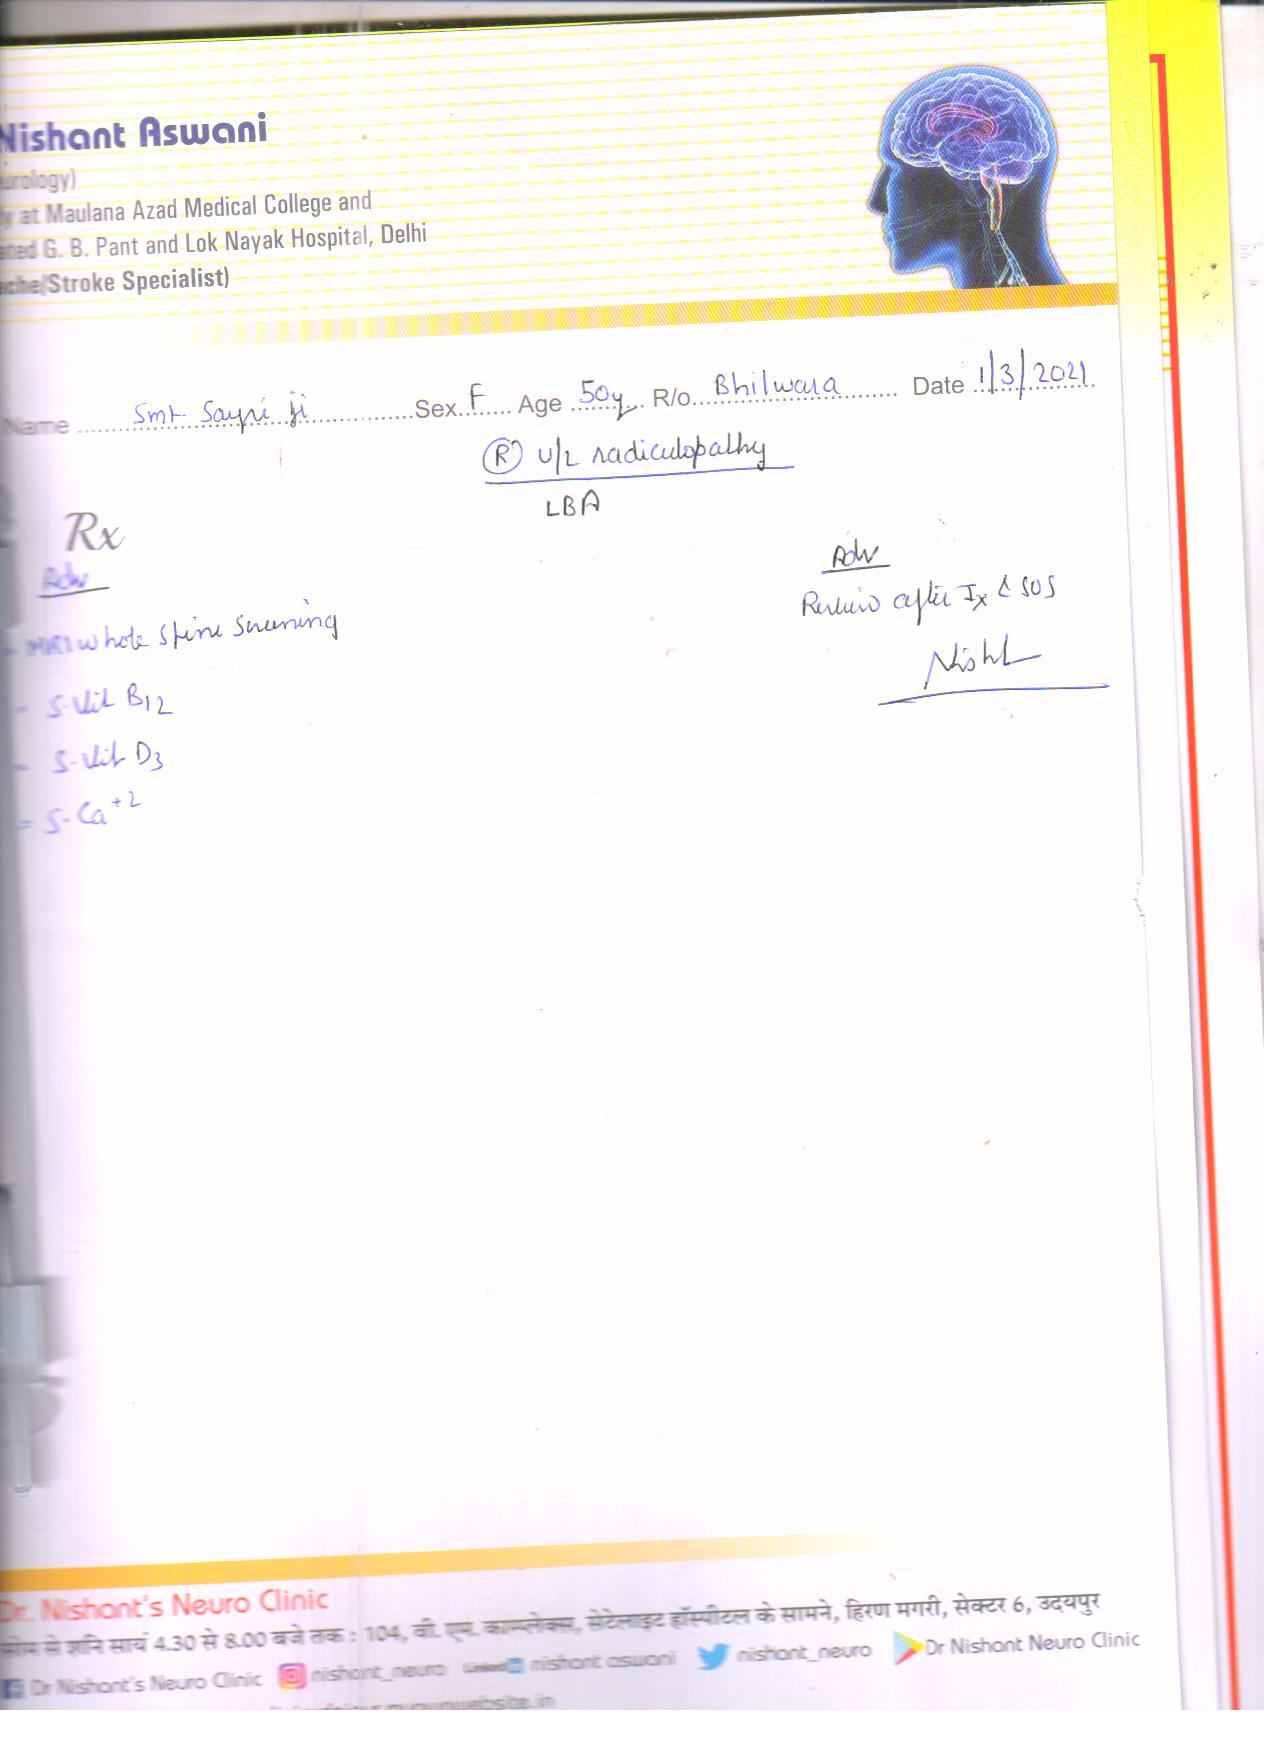 Nishant Aswani
urology)
y at Maulana Azad Medical College and
ated G. B. Pant and Lok Nayak Hospital, Delhi
ache/Stroke Specialist)
Name Smt Sayri ji Sex F Age 50y R/o Bhilwara Date 1/3/2021
(R) U/L radiculopathy
LBA
Rx
Adv
- MRI whole spine screening
- S. Vit B12
- S. Vit D3
- S. Ca+2
Adv
Review after Ix & SOS
Nisht
Dr. Nishant's Neuro Clinic
सोम से शनि सायं 4.30 से 8.00 बजे तक : 104, वी. एम. काम्पलेक्स, सेटेलाइट हॉस्पीटल के सामने, हिरण मगरी, सेक्टर 6, उदयपुर
Dr Nishant's Neuro Clinic nishant_neuro Linked in nishant aswani nishant_neuro Dr Nishant Neuro Clinic